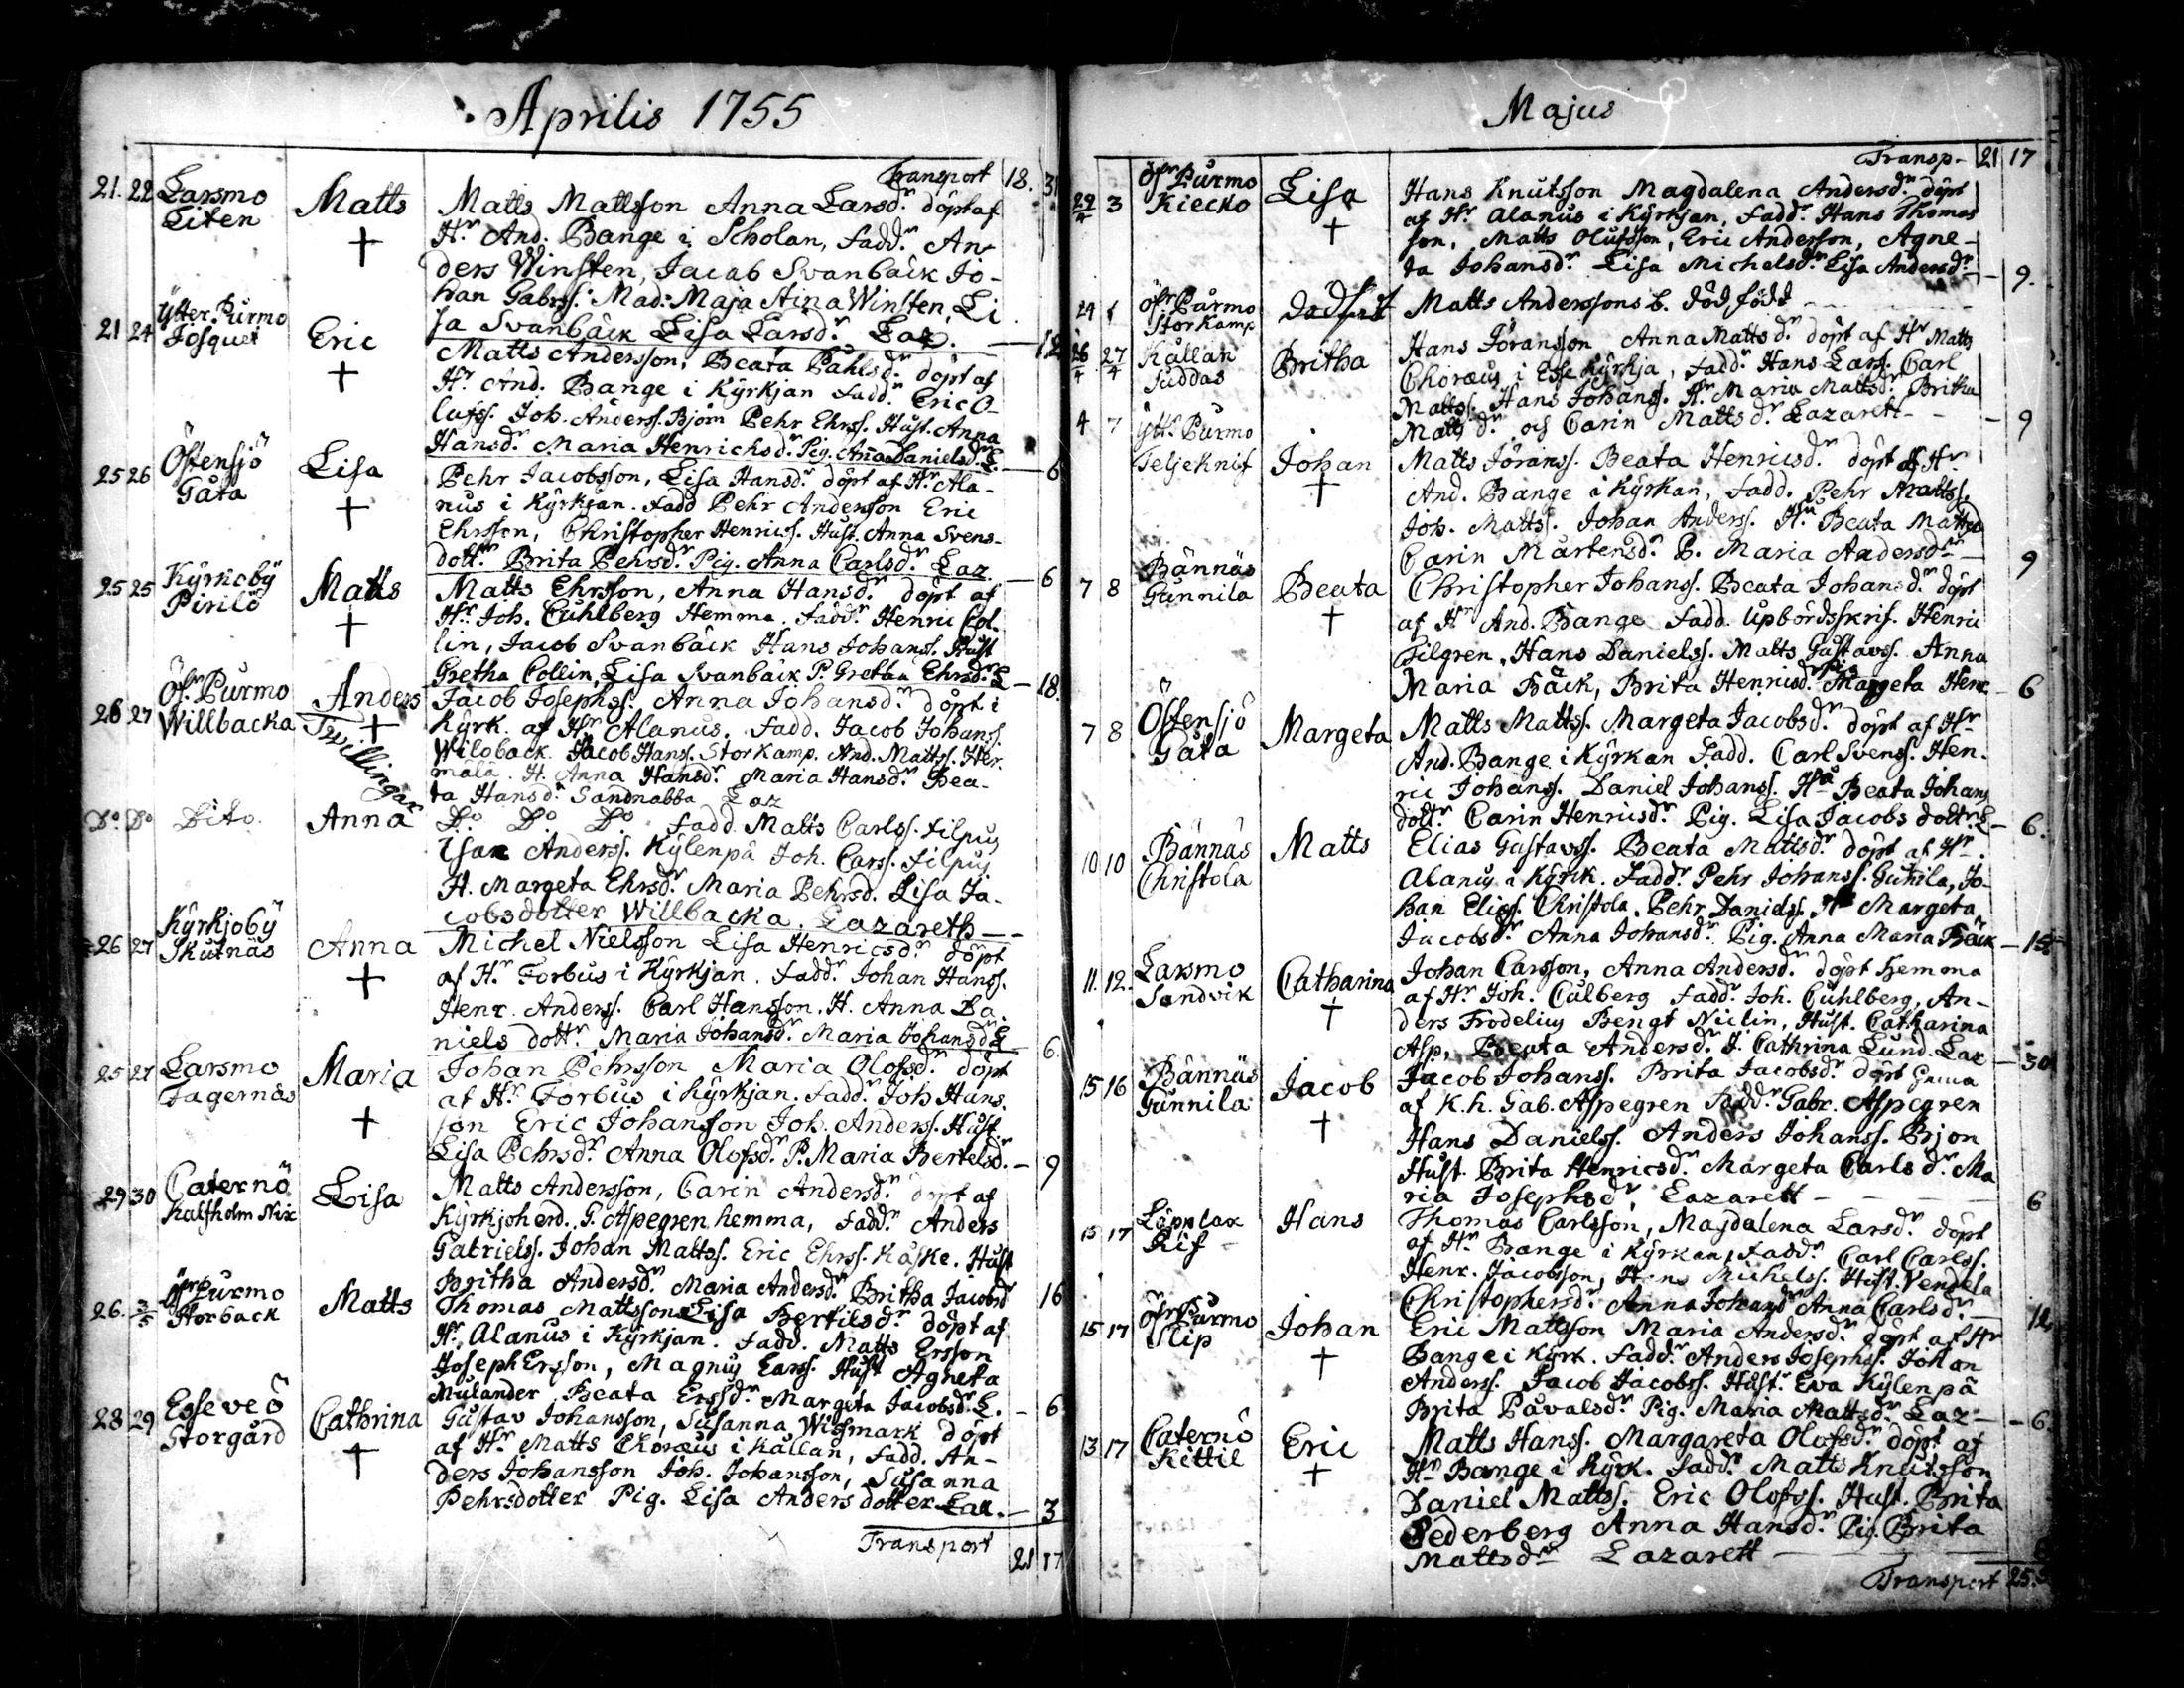 Aprilis 1755
Transport 18. 31
21. 22 Larsmo Matts Matts Mattsson Anna Larsdr. döpt af
Liten Hr. And. Bange i Scholan, Faddr. An-
ders Winsten, Jacob Svanbäck Jo-
han Gabrss. Mad: Maja Stina Winsten, Li
sa Svanbäck Lisa Larsdr. Laz. 12
21 24 Ytter Purmo Eric Matts Andersson, Beata Påhlsdr. döpt af
Hr. And. Bange i Kyrkjan Faddr. Eric O-
lufss. Joh. Anderss. Björn Pehr Ehrss. Hust. Anna
Hansdr. Maria Henrichsdr. Pig. Anna Danielsdr. L. 6
25 26 Östensjö Lisa Pehr Jacobsson, Lisa Hansdr. döpt af Hr. Ala-
Gåta nus i Kyrkjan. Fadd Pehr Andersson Eric
Ehrsson, Christopher Henricss. Hust. Anna Svens-
dottr. Brita Pehrsdr. Pig. Anna Carlsdr. Laz. 6
25 25 Kyrkoby Matts Matts Ehrsson, Anna Hansdr. döpt af
Pirilö Hr. Joh. Cuhlberg Hemma. Faddr. Henric Col-
lin, Jacob Svanbäck Hans Johanss. Hust
Gretha Collin, Lisa Svanbäck P. Gretha Ehrsdr. L 18.
26 27 Öfr. Purmo Anders Jacob Josephss. Anna Johansdr. döpt i
Willbacka Twillingar Kyrk. af Hr. Alanus. Fadd. Jacob Johanss.
Wilbback. Jacob Hanss. Storkamp. And. Mattss. Her-
mäla. H. Anna Hansdr. Maria Hansdr. Bea-
ta Hansdr. Sandnabba Laz
Do. Do Dito. Anna Do Do Do Fadd. Matts Carlss. Filpus
Isak Anderss. Kylenpä Joh. Carss. Filpus
H. Margeta Ehrsdr. Maria Pehrsd. Lisa Ja-
cobsdotter Willbacka. Lazareth
26 27 Kyrkjoby Anna Michel Nielsson Lisa Henricsdr. döpt
Skutnäs af Hr. Forbus i Kyrkjan. Faddr. Johan Hanss.
Henr. Anderss. Carl Hansson. H. Anna Da-
niels dottr. Maria Johansdr. Maria Johansdr. L 6.
25 27 Larsmo Maria Johan Pehrsson Maria Olofsdr. döpt
Fagernäs af Hr. Forbus i Kyrkjan. Faddr. Joh Hans-
son Eric Johansson Joh. Anderss. Hust
Lisa Pehrsdr. Anna Olofsdr. P. Maria Bertelsd. 9
29 30 Caternö Lisa Matts Andersson, Carin Andersdr. döpt af
Kalfholm Nix Kyrkjoherd. G. Aspegren hemma, Faddr. Anders
Gabrielss. Johan Mattss. Eric Ehrss. Kåske. Hust
Britha Andersdr. Maria Andersdr. Britha Jacobsd 16
26. 3/5 Öfr Purmo Matts Thomas Mattsson Lisa Bertilsdr. döpt af
Storback Hr. Alanus i Kyrkjan. Fadd. Matts Ersson
Joseph Ersson, Magnus Larss. Hust Agneta
Mulander Beata Erssdr. Margeta Jacobsdr. L. 6
28 29 Esse veö Cathrina Gustav Johansson, Susanna Wichmark döpt
Storgård af Hr. Matts Choræus i Kållan, Fadd. An-
ders Johansson Joh. Johansson, Susanna
Pehrsdotter Pig. Lisa Andersdotter Laz. 3
Transport 21 17
Majus
Transp. 21 17
29/4 3 Öfr Purmo Lisa Hans Knutsson Magdalena Andersdr. döpt
Kiecko af Hr. Alanus i Kyrkjan, Faddr. Hans Thomas
son, Matts Olufsson, Eric Andersson, Agne-
ta Johansdr. Lisa Michelsdr. Lisa Andersdr. 9.
24 Öfr Purmo Dödfödt Matts Anderssons b. död född
Storkamp
26/4 27/4 Kållan Britha Hans Jöransson Anna Mattsdr. döpt af Hr Matts
Suddas Choræus i Esse Kyrkja, Faddr. Hans Larss. Carl
Mattss. Hans Johanss. Hr. Maria Mattsdr. Britha
Mattsdr. och Carin Mattsdr. Lazarett 9
4 7 Yttr. Purmo Johan Matts Jöranss. Beata Henricsdr. döpt af Hr.
Teljeknif And. Bange i Kyrkan, Fadd. Pehr Mattss.
Joh. Mattss. Johan Anderss. Hu. Beata Mattsd
Carin Mårtensdr. P. Maria Andersdr. 9
7 8 Bännäs Beata Christopher Johanss. Beata Johansdr. döpt
Gunnila af Hr And. Bange Fadd. Upbördsskrif. Henric
Filgren, Hans Danielss. Matts Gustavss. Anna
Maria Bäck, Brita Henricsdr. Pig Margeta Henr. 6
7 8 Östensjö Margeta Matts Mattss. Margeta Jacobsdr. döpt af Hr
Gåta And. Bange i Kyrkan Fadd. Carl Svenss. Hen-
ric Johanss. Daniel Johanss. Hu Beata Johans
dottr. Carin Henricsdr. Pig. Lisa Jacobs dottr. L 6.
10 10 Bännäs Matts Elias Gustavss. Beata Mattsdr. döpt af Hr.
Christola Alanus i Kyrk. Faddr. Pehr Johanss. Gunila, Jo-
han Eliess. Christola. Pehr Danielss. H Margeta
Jacobsdr. Anna Johansdr. Pig. Anna Maria Bäck
11. 12. Larsmo Catharina Johan Carsson, Anna Andersdr. döpt hemma
Sandvik af Hr. Joh. Culberg Faddr. Joh. Cuhlberg, An-
ders Frodelius Bengt Niclin, Hust. Catharina
Asp, Beata Andersdr. J. Cathrina Lund. Laz 30
15 16 Bännäs Jacob Jacob Johanss. Brita Jacobsdr. döpt
Gunnila af K.h. Gab. Aspegren Faddr. Gabr. Aspegren
Hans Danielss. Anders Johanss. Bjon
Hust. Brita Henricsdr. Margeta Carlsdr. Ma
ria Josephsdr. Lazarett 6
15 17 Löpplax Hans Thomas Carlsson, Magdalena Larsdr. döpt
Rif af Hr. Bange i Kyrkan, Faddr. Carl Carlss.
Henr. Jacobsson, Hans Michelss. Hust. Vendela
Christophersdr. Anna Johansdr Anna Carlsdr. 12
15 17 Öfr Purmo Johan Eric Mattsson Maria Andersdr. döpt af Hr
Slip Bange i Kyrk. Faddr. Anders Josephss. Johan
Anderss. Jacob Jacobss. Hust. Eva Kylenpä
Brita Påvalsdr. Pig. Maria Mattsdr. Laz 6.
13 17 Caternö Eric Matts Hanss. Margareta Olofsdr. döpt af
Kittil Hr. Bange i Kyrk. Faddr. Matts Knutsson
Daniel Mattss. Eric Olofss. Hust. Brita
Sederberg Anna Hansdr. Pig. Brita
Mattsdr. Lazarett
Transport 25.